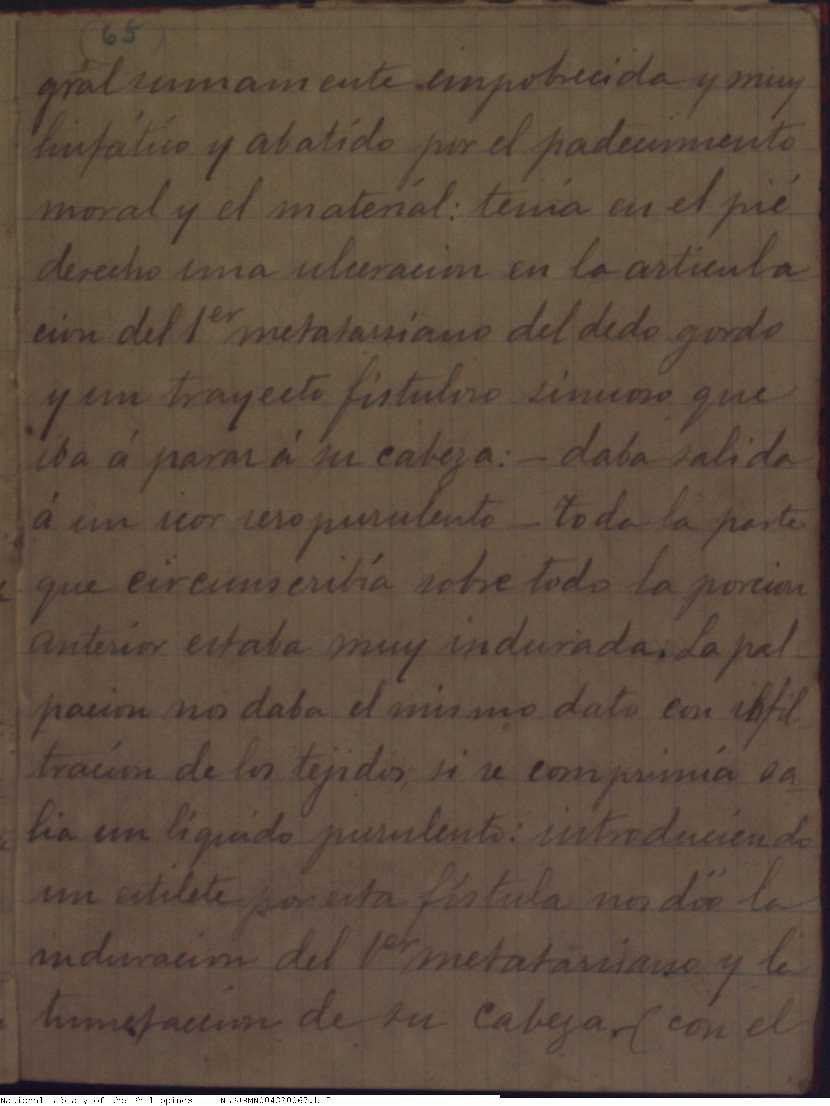 (65)
gral sumamente empobrecida y muy
linfático y abatido por el padecimiento
moral y el material: tenía en el pié
derecho una ulceracion en la articula
cion del 1er metatarsiano del dedo gordo
y un trayecto fistuloso sinuoso que
iba á parar á su cabeza: – daba salida
á un icor seropurulento – toda la parte
que circunscribía sobre todo la porcion
anterior estaba muy indurada. La pal-
pacion nos daba el mismo dato con infil-
tracion de los tejidos, si se comprimía sa-
lia un líquido purulento: introduciendo
un estilete por esta fístula nos dió la
induracion del 1er metatarsiano y la
tumefaccion de su cabeza. (con el
National Library of the Philippines